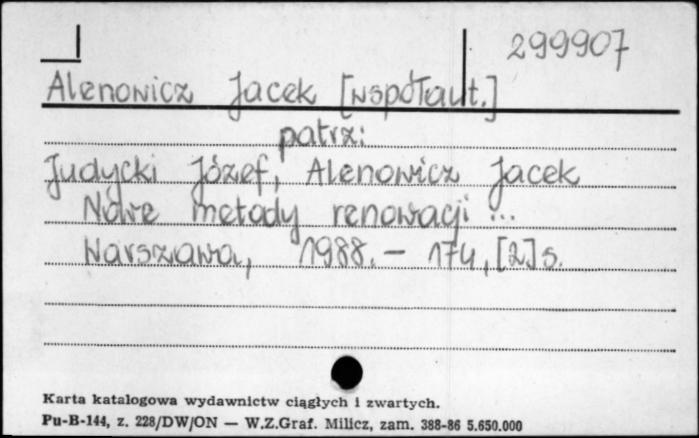 299907
Alenowicz Jacek [współaut.]
patrz:
Judycki Józef, Alenowicz Jacek
Nowe metody renowacji ...
Warszawa, 1988. – 174, [2] s.
Karta katalogowa wydawnictw ciągłych i zwartych.
Pu-B-144, z. 228/DW/ON — W.Z.Graf. Milicz, zam. 388-86 5.650.000